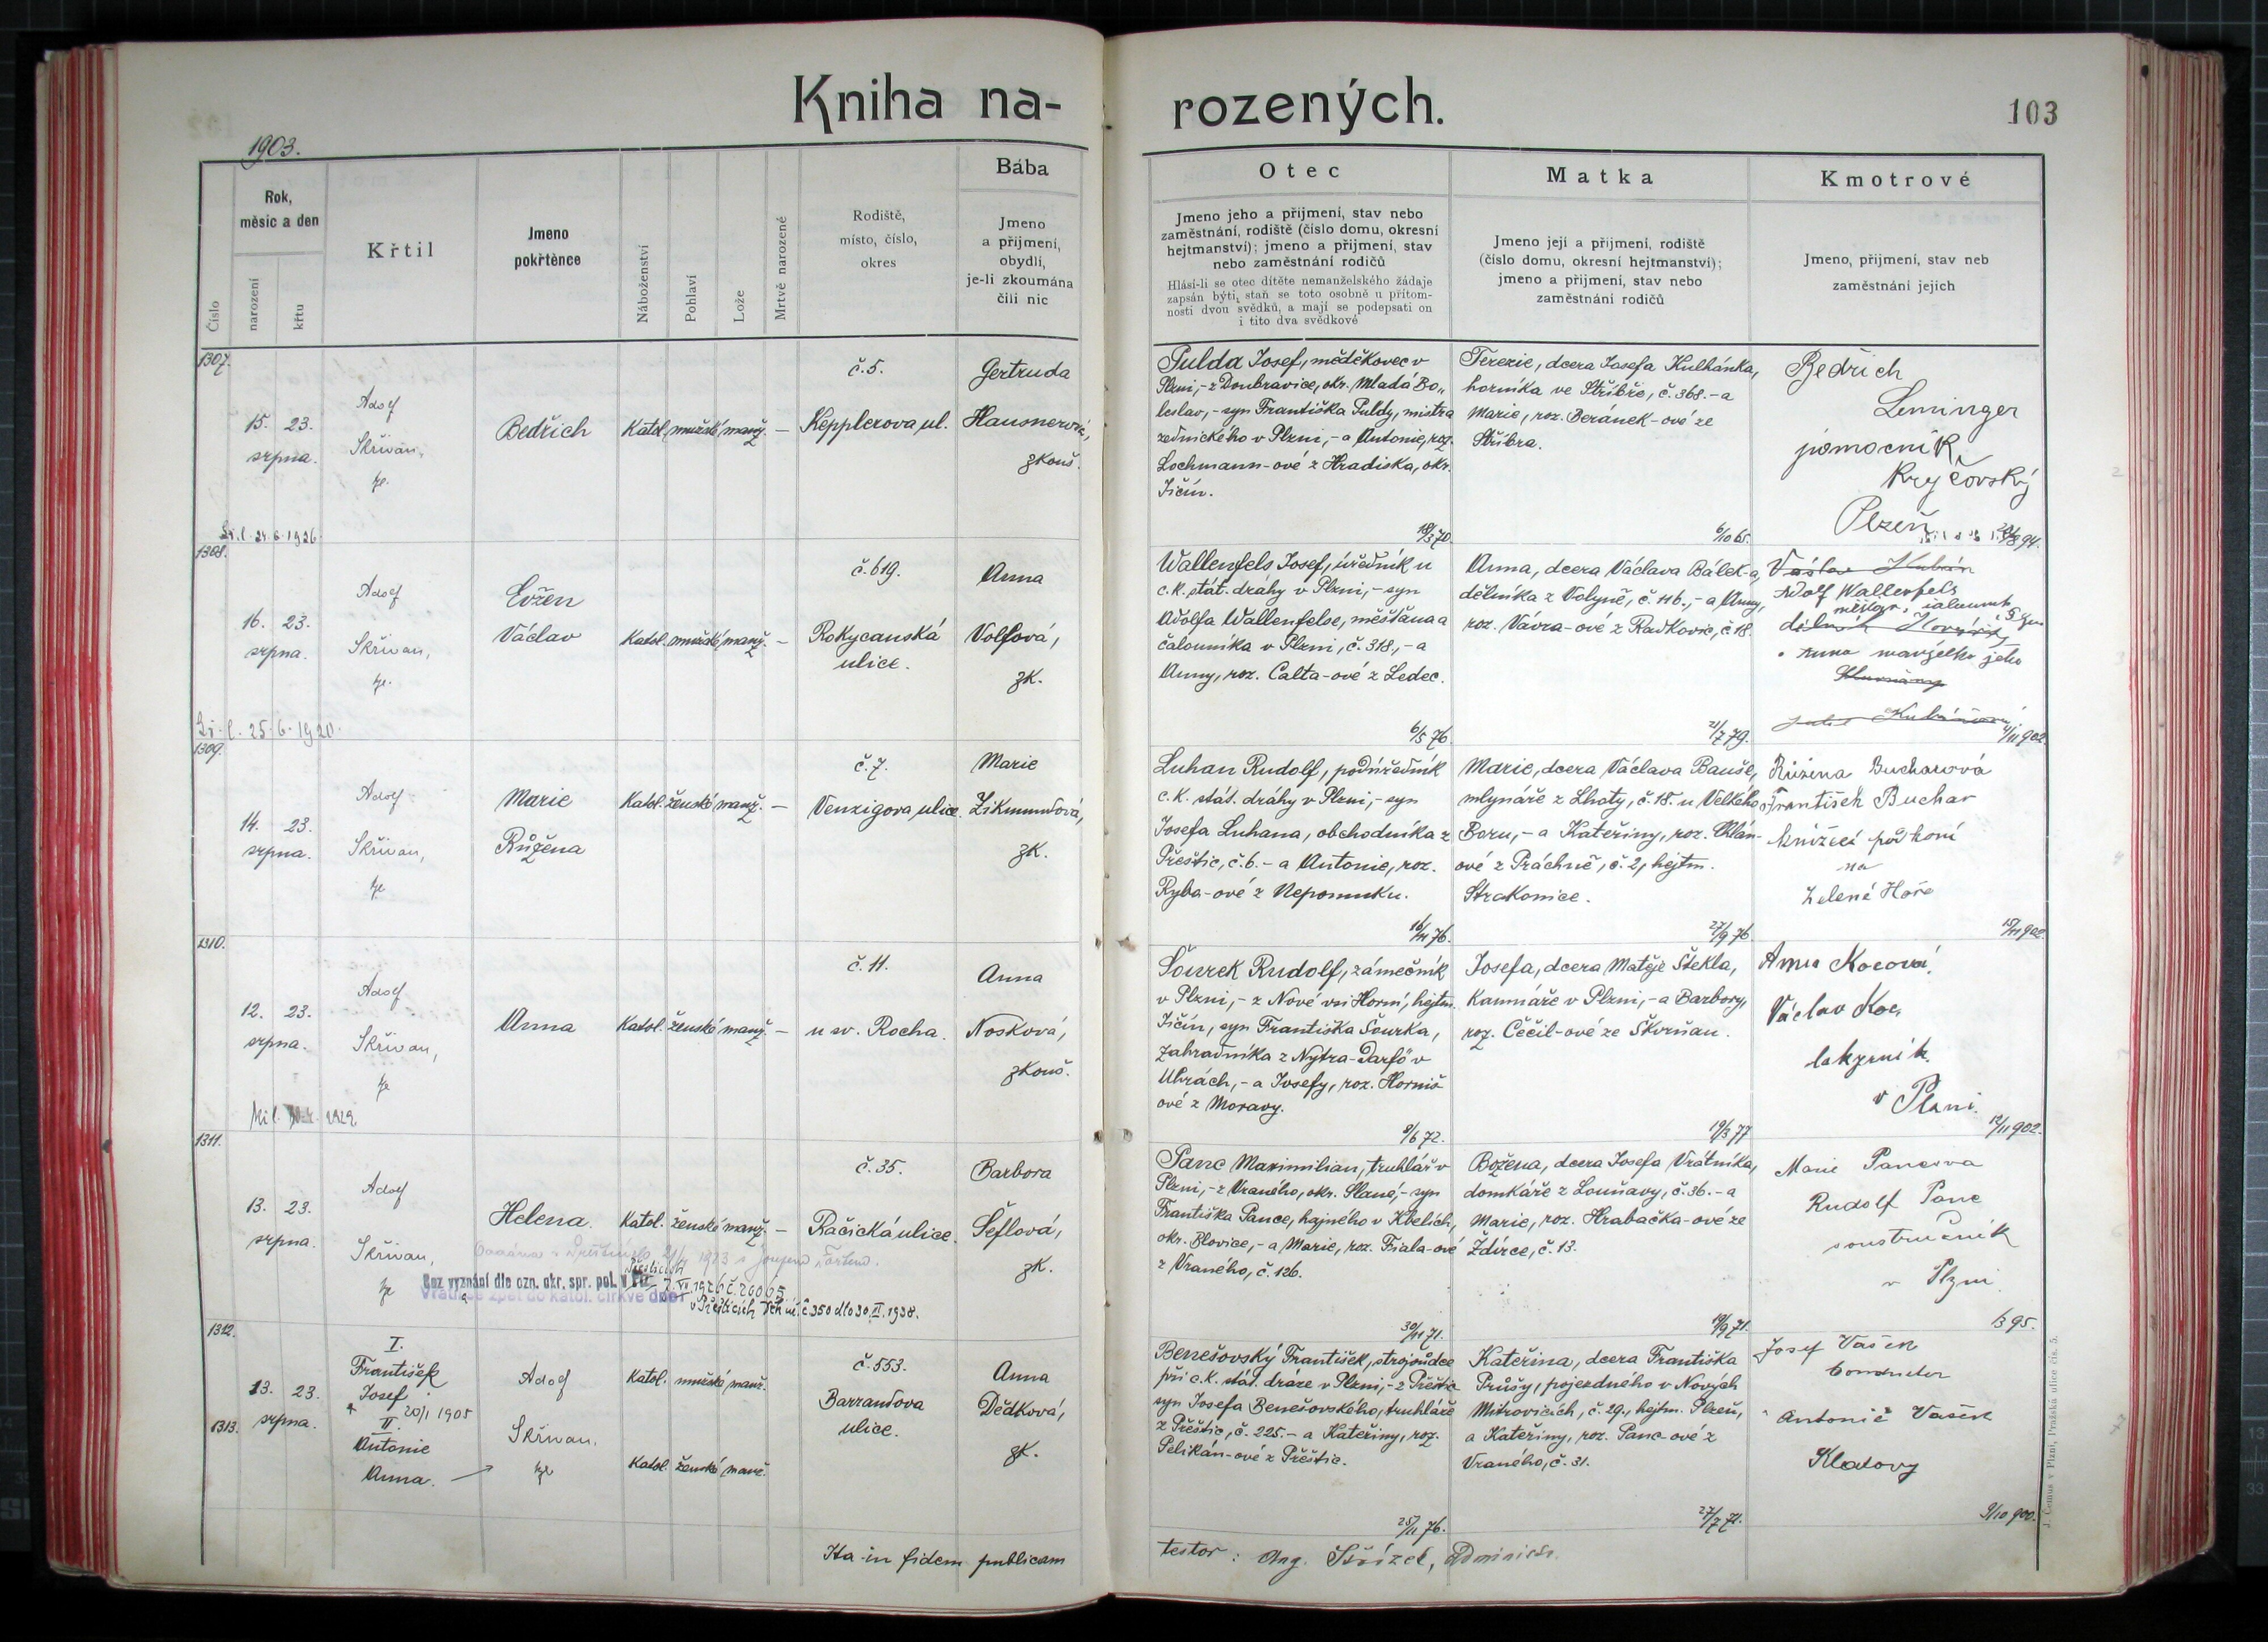 Kniha na-
rozených.
103
1903.
Číslo
Rok,
měsíc a den
narození
křtu
Křtil
Jmeno
pokřtěnce
Náboženství
Pohlaví
Lože
Mrtvě narozené
Rodiště,
místo, číslo,
okres
Bába
Jmeno
a přijmení,
obydlí,
je-li zkoumána
čili nic
Otec
Jmeno jeho a přijmení, stav nebo
zaměstnání, rodiště (číslo domu, okresní
hejtmanství); jmeno a přijmení, stav
nebo zaměstnání rodičů
Hlásí-li se otec dítěte nemanželského žádaje
zapsán býti, staň se toto osobně u přítom-
nosti dvou svědků, a mají se podepsati on
i tito dva svědkové
Matka
Jmeno její a přijmení, rodiště
(číslo domu, okresní hejtmanství);
jmeno a přijmení, stav nebo
zaměstnání rodičů
Kmotrové
Jmeno, přijmení, stav neb
zaměstnání jejich
1307.
15. 23.
srpna.
Adolf
Skřivan,
Bedřich
Katol. mužské manž. —
č. 5.
Kepplerova ul.
Gertruda
Hausnerová,
zkouš.
Pulda Josef, měděkovec v
Plzni, - z Doubravice, okr. Mladá Bo-
leslav, - syn Františka Puldy, mistra
zednického v Plzni, - a Antonie, roz.
Lochmann-ové z Hradiska, okr.
Jičín.
18/3 70.
Terezie, dcera Josefa Kulhánka,
horníka ve Stříbře, č. 368. - a
Marie, roz. Beránek-ové ze
Stříbra.
6/10 65.
Bedřich
Leminger
pomocník
Plzeň
1308.
16. 23.
srpna.
Adolf
Skřivan,
Evžen
Václav
Katol. mužské manž. —
č. 619.
Rokycanská
ulice.
Anna
Volfová,
zk.
Wallenfels Josef, úředník u
c. k. stát. dráhy v Plzni, - syn
Adolfa Wallenfelse, měšťana a
čalouníka v Plzni, č. 318., - a
Anny, roz. Calta-ové z Ledec.
6/5 76.
Anna, dcera Václava Bálek-a,
dělníka z Volyně, č. 116., - a Anny,
roz. Vávra-ové z Radkovic, č. 18.
21/7 79.
Adolf Wallenfels
Anna manželka jeho
25. 6. 1920.
1309.
14. 23.
srpna.
Adolf
Skřivan,
Marie
Růžena
Katol. ženské manž. —
č. 7.
Venzigova ulice.
Marie
Zikmundová,
zk.
Luhan Rudolf, podúředník
c. k. stát. dráhy v Plzni, - syn
Josefa Luhana, obchodníka z
Přeštic, č. 6. - a Antonie, roz.
Ryba-ové z Nepomuku.
16/11 76.
Marie, dcera Václava Bauše,
mlynáře z Lhoty, č. 18. u Velkého
Boru, - a Kateřiny, roz. Chlán-
ové z Práchně, č. 2, hejtm.
Strakonice.
27/9 76.
Růžena Bucharová
František Buchar
knížecí podkoní
na
Zelené Hoře
1310.
12. 23.
srpna.
Adolf
Skřivan,
Anna
Katol. ženské manž. —
č. 11.
u sv. Rocha.
Anna
Nosková,
zkouš.
Šourek Rudolf, zámečník
v Plzni, - z Nové vsi Horní, hejtm.
Jičín, syn Františka Šourka,
zahradníka z Nytra-Darfö v
Uhrách, - a Josefy, roz. Horniš
ové z Moravy.
9/6 72.
Josefa, dcera Matěje Štekla,
kamnáře v Plzni, - a Barbory,
roz. Cěčil-ové ze Škvrňan.
19/3 77
Anna Kocová
Václav Koc,
lakyrník
v Plzni.
12/11 902.
1311.
13. 23.
srpna.
Adolf
Skřivan,
Helena.
Katol. ženské manž. —
č. 35.
Račická ulice.
Barbora
Šeflová,
zk.
Bez vyznání dle ozn. okr. spr. pol. v
Vrátila se zpět do katol. církve dne
v Přešticích č. 350 dto 30. XI. 1938.
Panc Maximilian, truhlář v
Plzni, - z Vraného, okr. Slané, - syn
Františka Pance, hajného v Kbelích,
okr. Blovice, - a Marie, roz. Fiala-ové
z Vraného, č. 126.
30/11 71.
Božena, dcera Josefa Vrátníka,
domkáře z Louňavy, č. 36. - a
Marie, roz. Hrabačka-ové ze
Ždírce, č. 13.
19/9 71.
Marie Pancova
Rudolf Panc
soustružník
v Plzni
1312.
1313.
13. 23.
srpna.
I.
František
Josef
20/1 1905
II.
Antonie
Anna.
Adolf
Skřivan,
Katol. mužské manž.
Katol. ženské manž.
č. 553.
Barrandova
ulice.
Anna
Dědková,
zk.
Benešovský František, strojvůdce
při c. k. stát. dráze v Plzni, - z Přeštic
syn Josefa Benešovského, truhláře
z Přeštic, č. 225. - a Kateřiny, roz.
Pelikán-ové z Přeštic.
25/11 76.
Kateřina, dcera Františka
Průšy, pojezdného v Nových
Mitrovicích, č. 29., hejtm. Plzeň,
a Kateřiny, roz. Panc-ové z
Vraného, č. 31.
27/7 71.
Josef Vašek
Conductor
Antonie Vašek
Klatovy
9/10 900.
Ita in fidem publicam
testor:
J. Čemus v Plzni, Pražská ulice čís. 5.